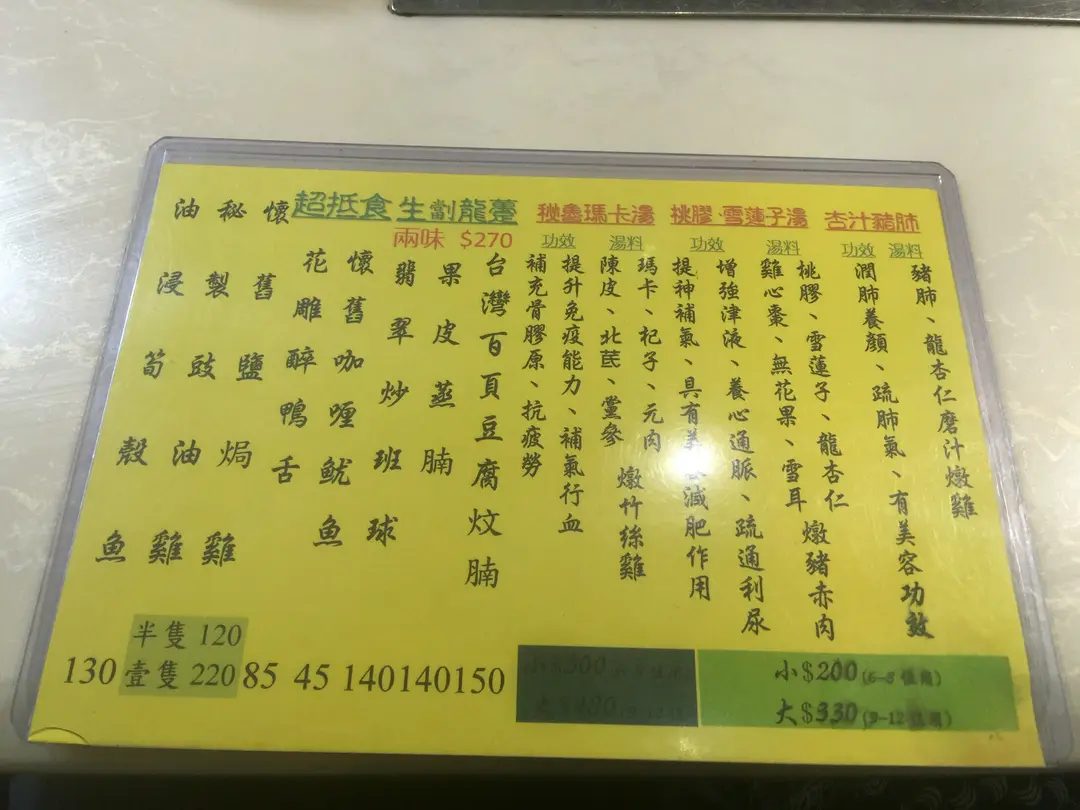 杏汁豬肺
湯料
豬肺、龍杏仁磨汁燉雞
功效
潤肺養顏、疏肺氣、有美容功效
桃膠·雪蓮子湯
湯料
桃膠、雪蓮子、龍杏仁
雞心棗、無花果、雪耳 燉豬赤肉
功效
增強津液、養心通脈、疏通利尿
提神補氣、具有 減肥作用
小$200(6-8位用)
大$330(9-12位用)
秘魯瑪卡湯
湯料
瑪卡、杞子、元肉
陳皮、北芪、黨參 燉竹絲雞
功效
提升免疫能力、補氣行血
補充骨膠原、抗疲勞
小$300
大
超抵食 生劏龍躉
兩味 $270
台灣百頁豆腐炆腩
150
果皮蒸腩
140
翡翠炒班球
140
懷舊咖喱魷魚
45
花雕醉鴨舌
85
懷舊鹽焗雞
秘製豉油雞
半隻 120
壹隻 220
油浸筍殼魚
130